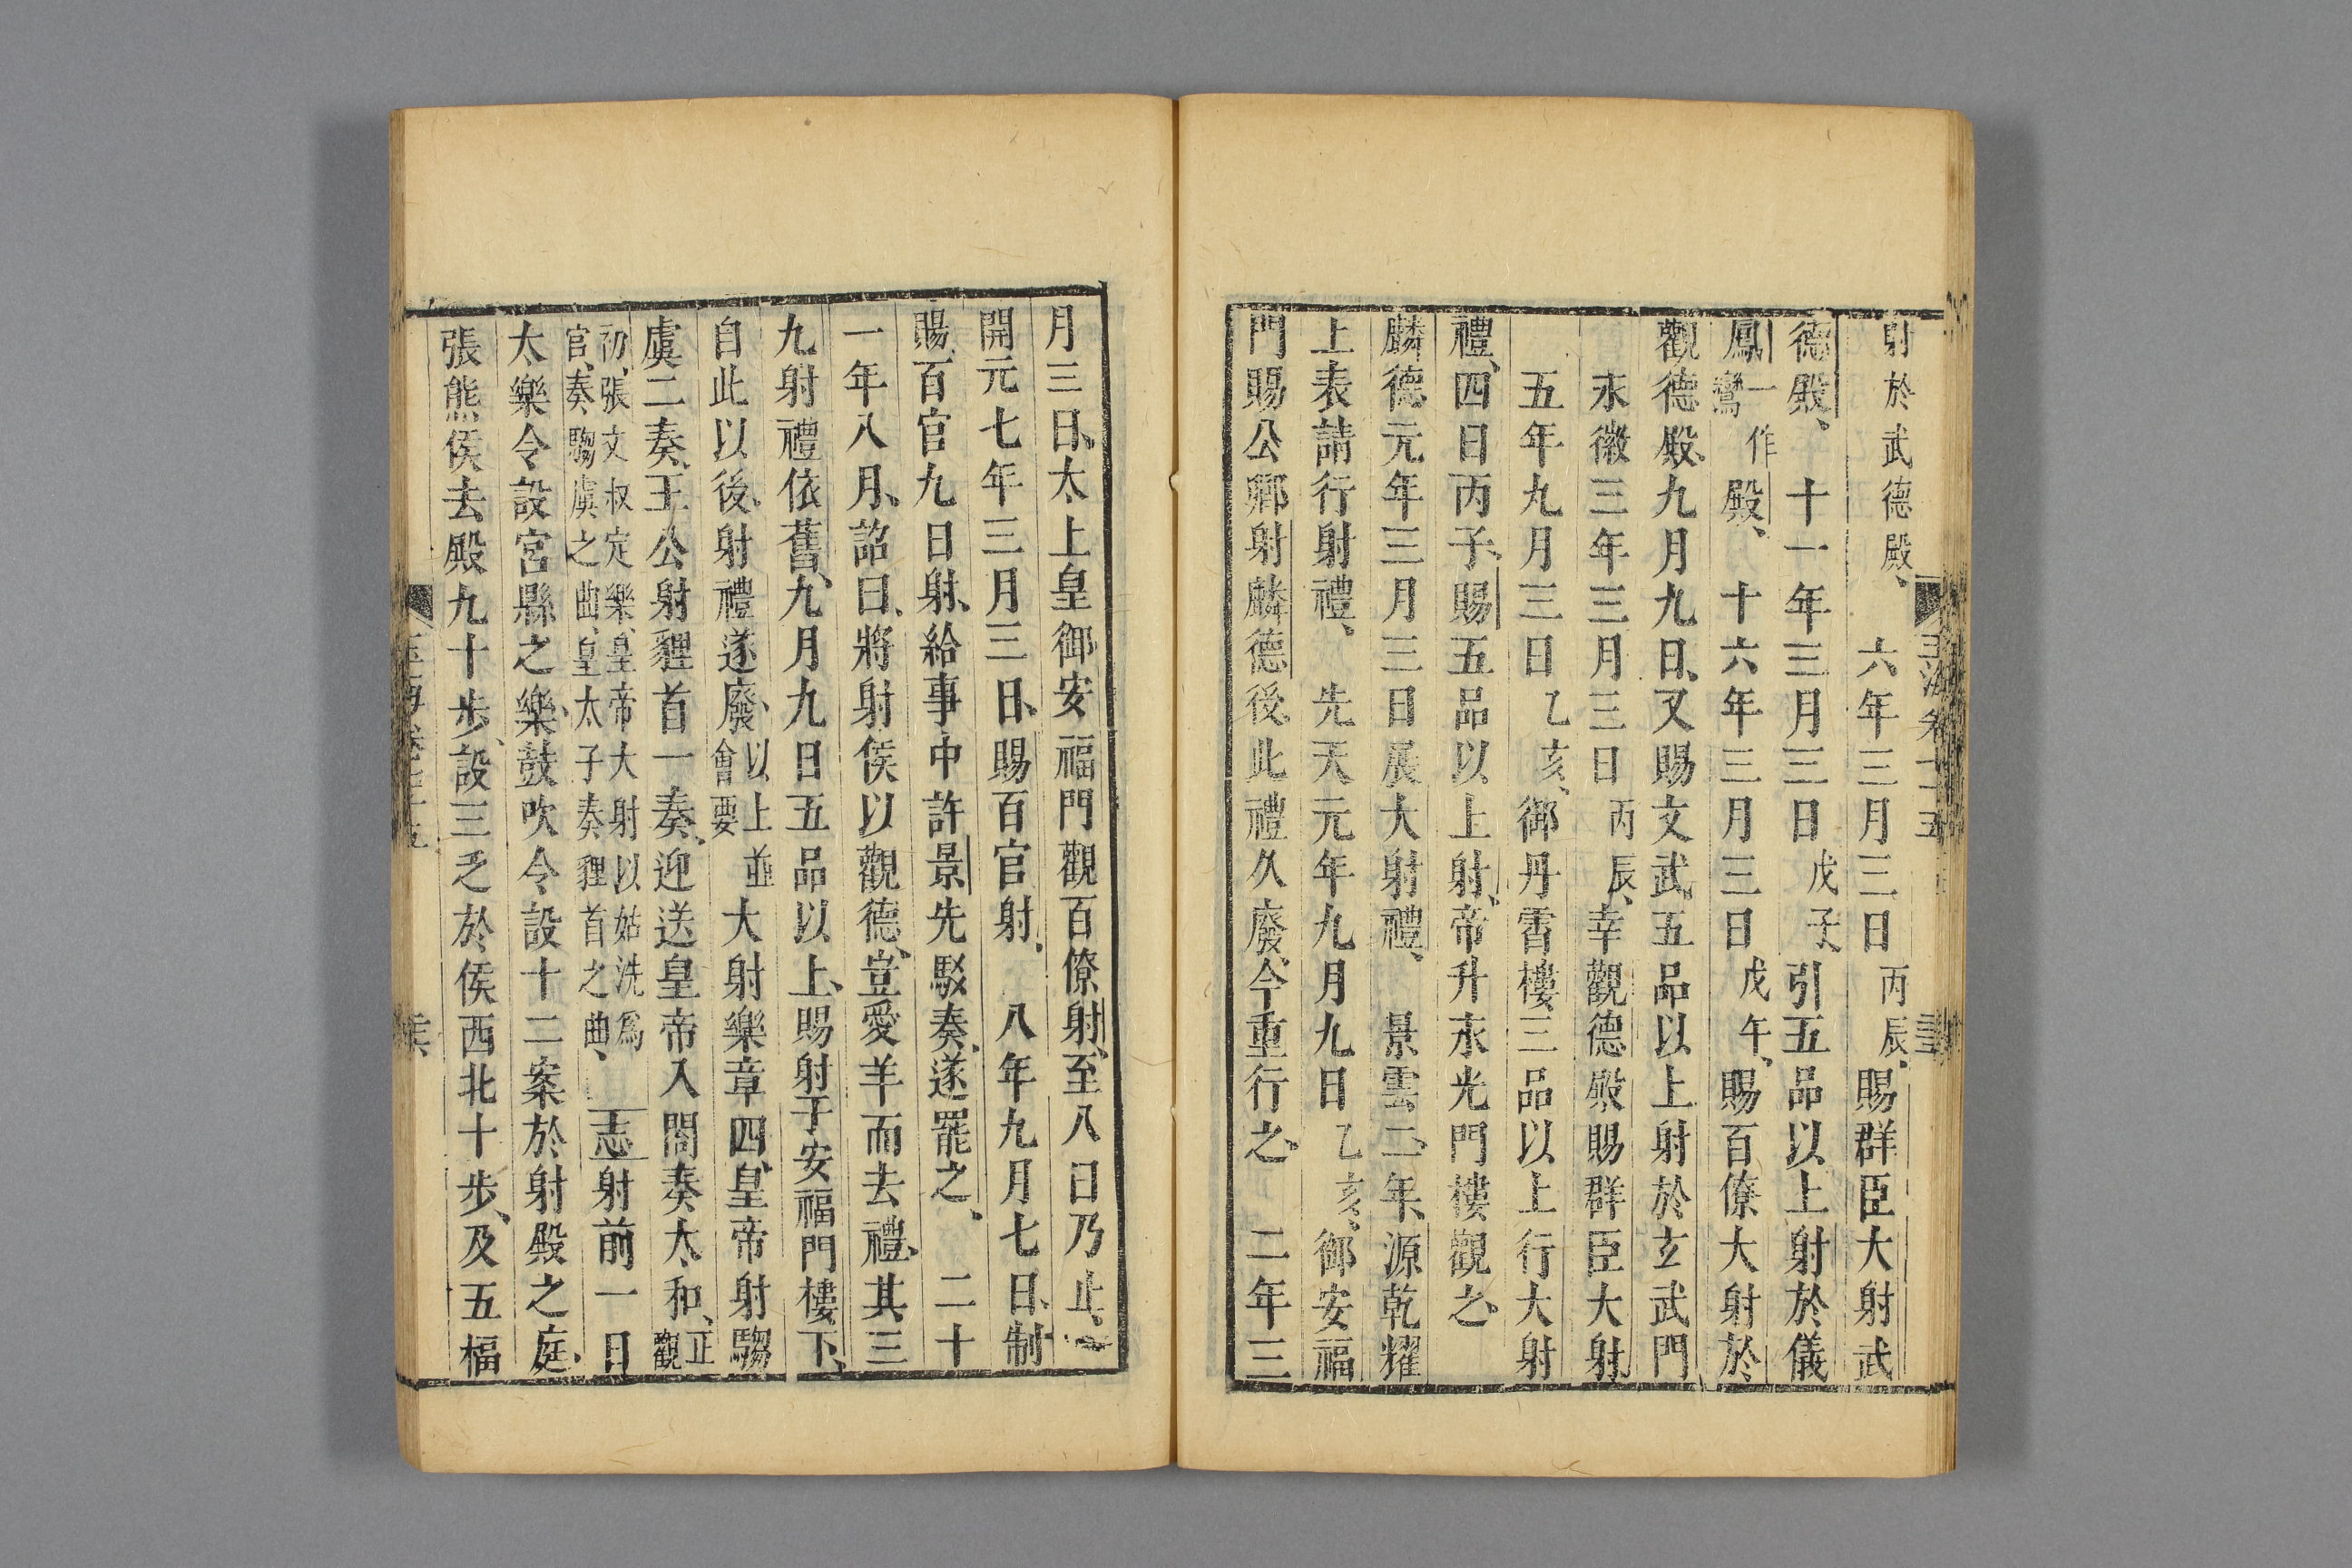 射於武德殿、六年三月三日丙辰、賜群臣大射武
德殿、十一年三月三日戊子、引五品以上射於儀
鳳一作鸞殿、十六年三月三日戊午、賜百僚大射於
觀德殿、九月九日、又賜文武五品以上射於玄武門
永徽三年三月三日丙辰、幸觀德殿賜群臣大射
五年九月三日乙亥、御丹霄樓三品以上行大射
禮、四日丙子、賜五品以上射、帝升永光門樓觀之、
麟德元年三月三日展大射禮、景雲二年、源乾耀
上表請行射禮、先天元年九月九日乙亥、御安福
門賜公卿射麟德後、此禮久廢、今重行之、二年三
月三日、太上皇御安福門觀百僚射、至八日乃止、
開元七年三月三日、賜百官射、八年九月七日、制
賜百官九日射、給事中許景先駁奏、遂罷之、二十
一年八月、詔曰、將射侯以觀德、豈愛羊而去禮、其三
九射禮依舊、九月九日五品以上、賜射于安福門樓下、
自此以後、射禮遂廢、以上並會要大射樂章四、皇帝射騶
虞二奏、王公射貍首一奏、迎送皇帝入閤奏太和、正觀
初、張文收定樂、皇帝大射以姑洗爲
官、奏騶虞之曲、皇太子奏貍首之曲、志射前一日
太樂令設宮縣之樂、鼓吹令設十二案於射殿之庭、
張熊侯去殿九十步、設三乏於侯西北十步、及五楅
玉海卷七十五